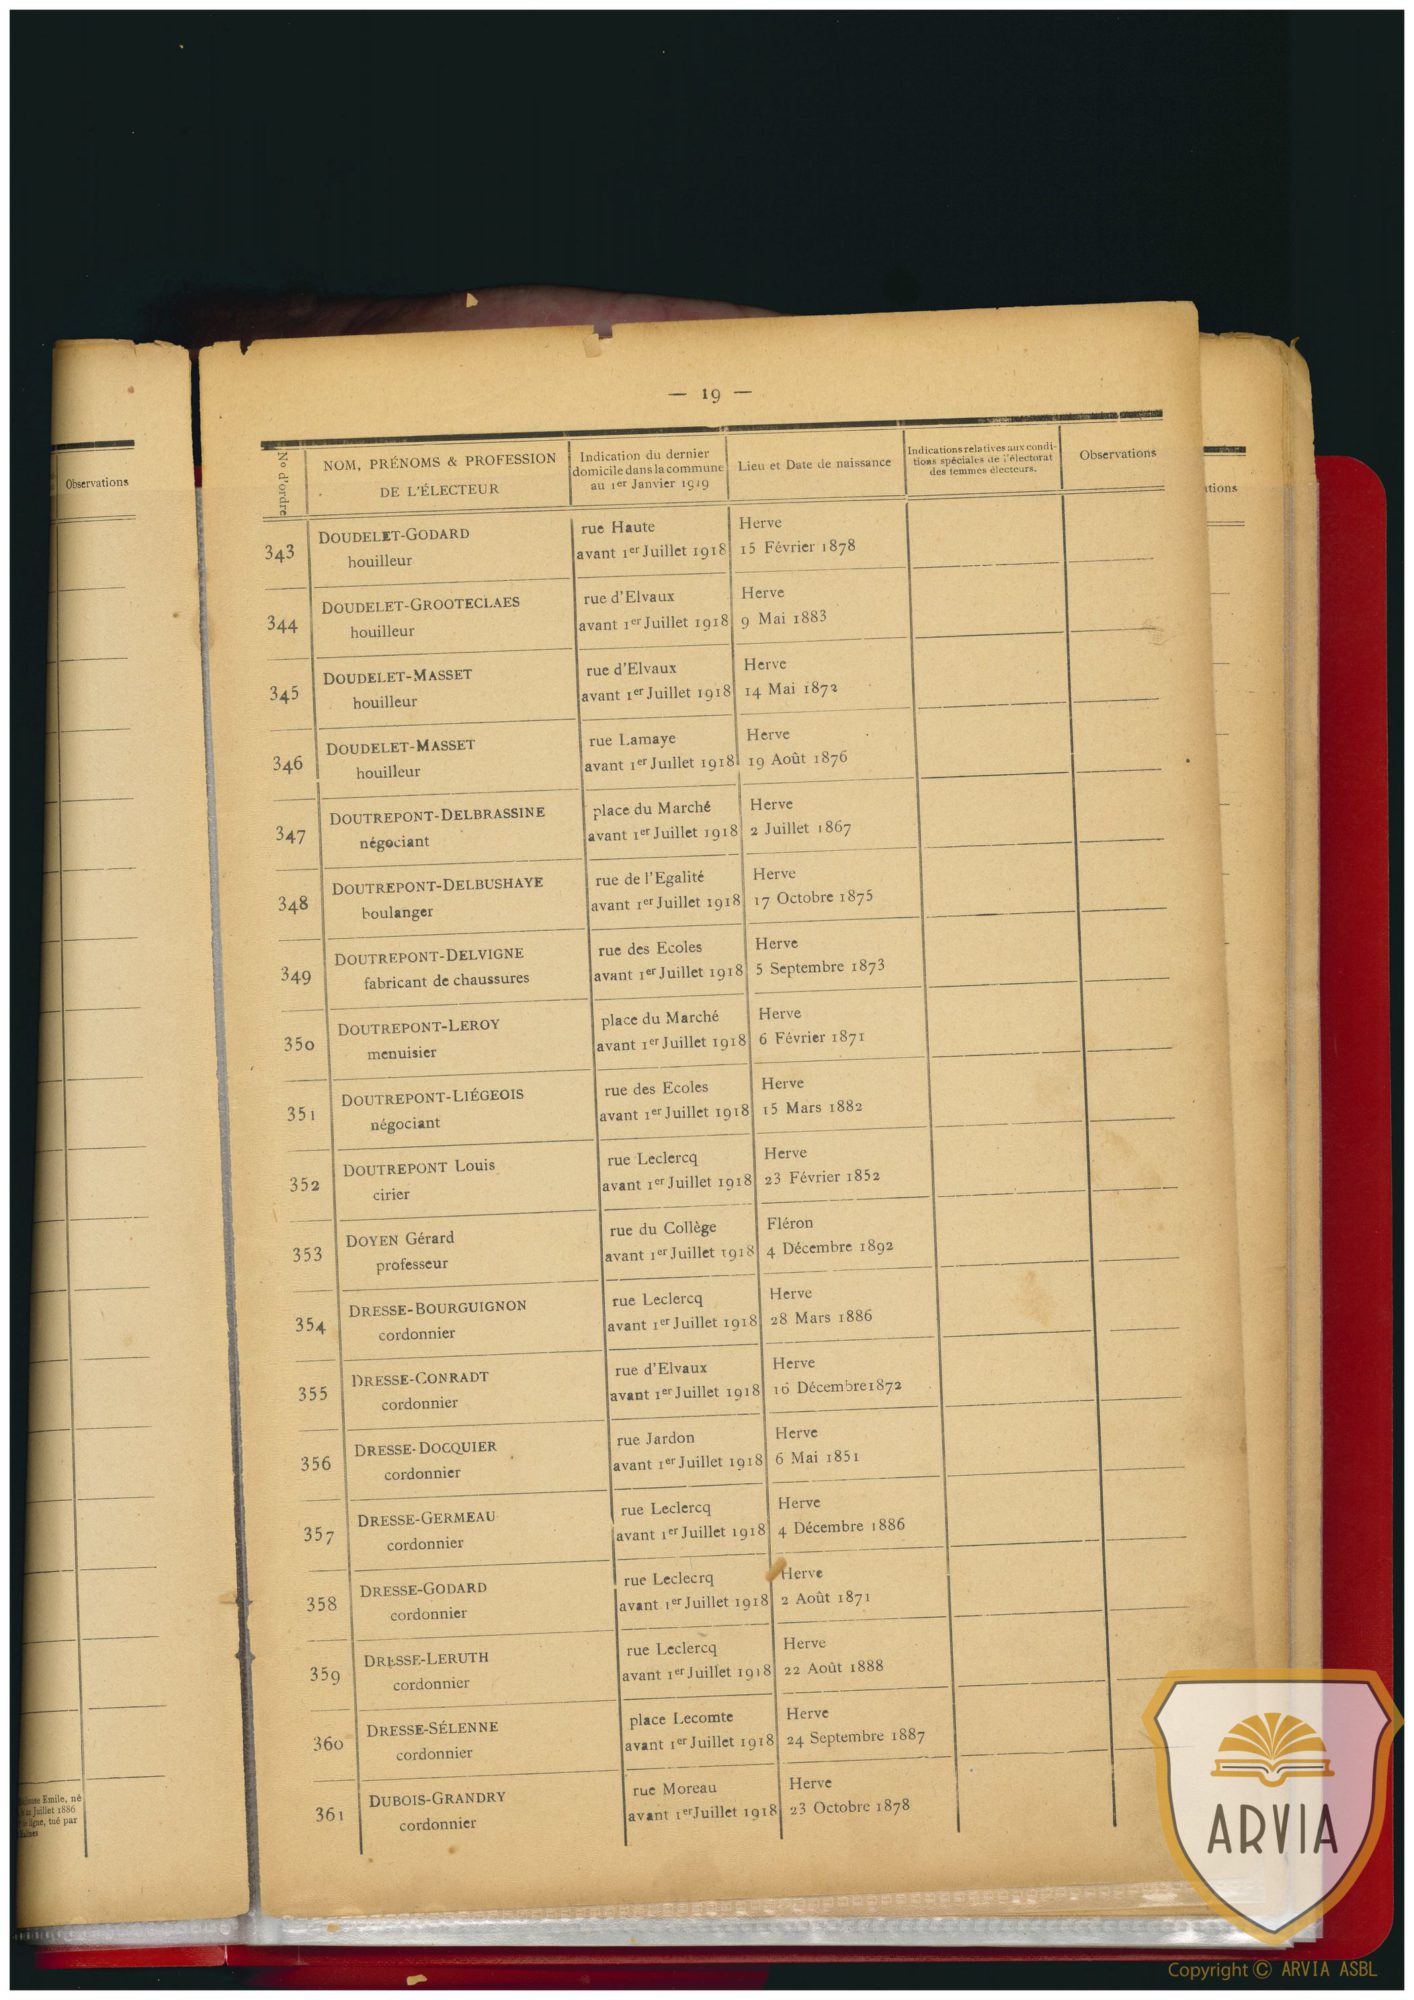 Observations
— 19 —
No d'ordre
NOM, PRÉNOMS & PROFESSION
DE L'ÉLECTEUR
Indication du dernier
domicile dans la commune
au 1er Janvier 1919
Lieu et Date de naissance
Indications relatives aux condi-
tions spéciales de l'électorat
des femmes électeurs.
Observations
343 DOUDELET-GODARD rue Haute Herve
houilleur avant 1er Juillet 1918 15 Février 1878
344 DOUDELET-GROOTECLAES rue d'Elvaux Herve
houilleur avant 1er Juillet 1918 9 Mai 1883
345 DOUDELET-MASSET rue d'Elvaux Herve
houilleur avant 1er Juillet 1918 14 Mai 1872
346 DOUDELET-MASSET rue Lamaye Herve
houilleur avant 1er Juillet 1918 19 Août 1876
347 DOUTREPONT-DELBRASSINE place du Marché Herve
négociant avant 1er Juillet 1918 2 Juillet 1867
348 DOUTREPONT-DELBUSHAYE rue de l'Egalité Herve
boulanger avant 1er Juillet 1918 17 Octobre 1875
349 DOUTREPONT-DELVIGNE rue des Ecoles Herve
fabricant de chaussures avant 1er Juillet 1918 5 Septembre 1873
350 DOUTREPONT-LEROY place du Marché Herve
menuisier avant 1er Juillet 1918 6 Février 1871
351 DOUTREPONT-LIÉGEOIS rue des Ecoles Herve
négociant avant 1er Juillet 1918 15 Mars 1882
352 DOUTREPONT Louis rue Leclercq Herve
cirier avant 1er Juillet 1918 23 Février 1852
353 DOYEN Gérard rue du Collège Fléron
professeur avant 1er Juillet 1918 4 Décembre 1892
354 DRESSE-BOURGUIGNON rue Leclercq Herve
cordonnier avant 1er Juillet 1918 28 Mars 1886
355 DRESSE-CONRADT rue d'Elvaux Herve
cordonnier avant 1er Juillet 1918 16 Décembre 1872
356 DRESSE-DOCQUIER rue Jardon Herve
cordonnier avant 1er Juillet 1918 6 Mai 1851
357 DRESSE-GERMEAU rue Leclercq Herve
cordonnier avant 1er Juillet 1918 4 Décembre 1886
358 DRESSE-GODARD rue Leclecrq Herve
cordonnier avant 1er Juillet 1918 2 Août 1871
359 DRESSE-LERUTH rue Leclercq Herve
cordonnier avant 1er Juillet 1918 22 Août 1888
360 DRESSE-SÉLENNE place Lecomte Herve
cordonnier avant 1er Juillet 1918 24 Septembre 1887
361 DUBOIS-GRANDRY rue Moreau Herve
cordonnier avant 1er Juillet 1918 23 Octobre 1878
Emile, né
Juillet 1886
ligne, tué par
ARVIA
Copyright © ARVIA ASBL